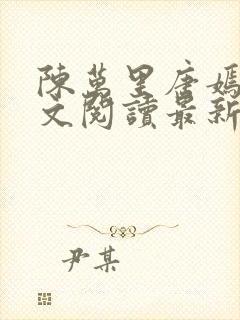 陳萬里唐嫣
文閱讀最新
尹某